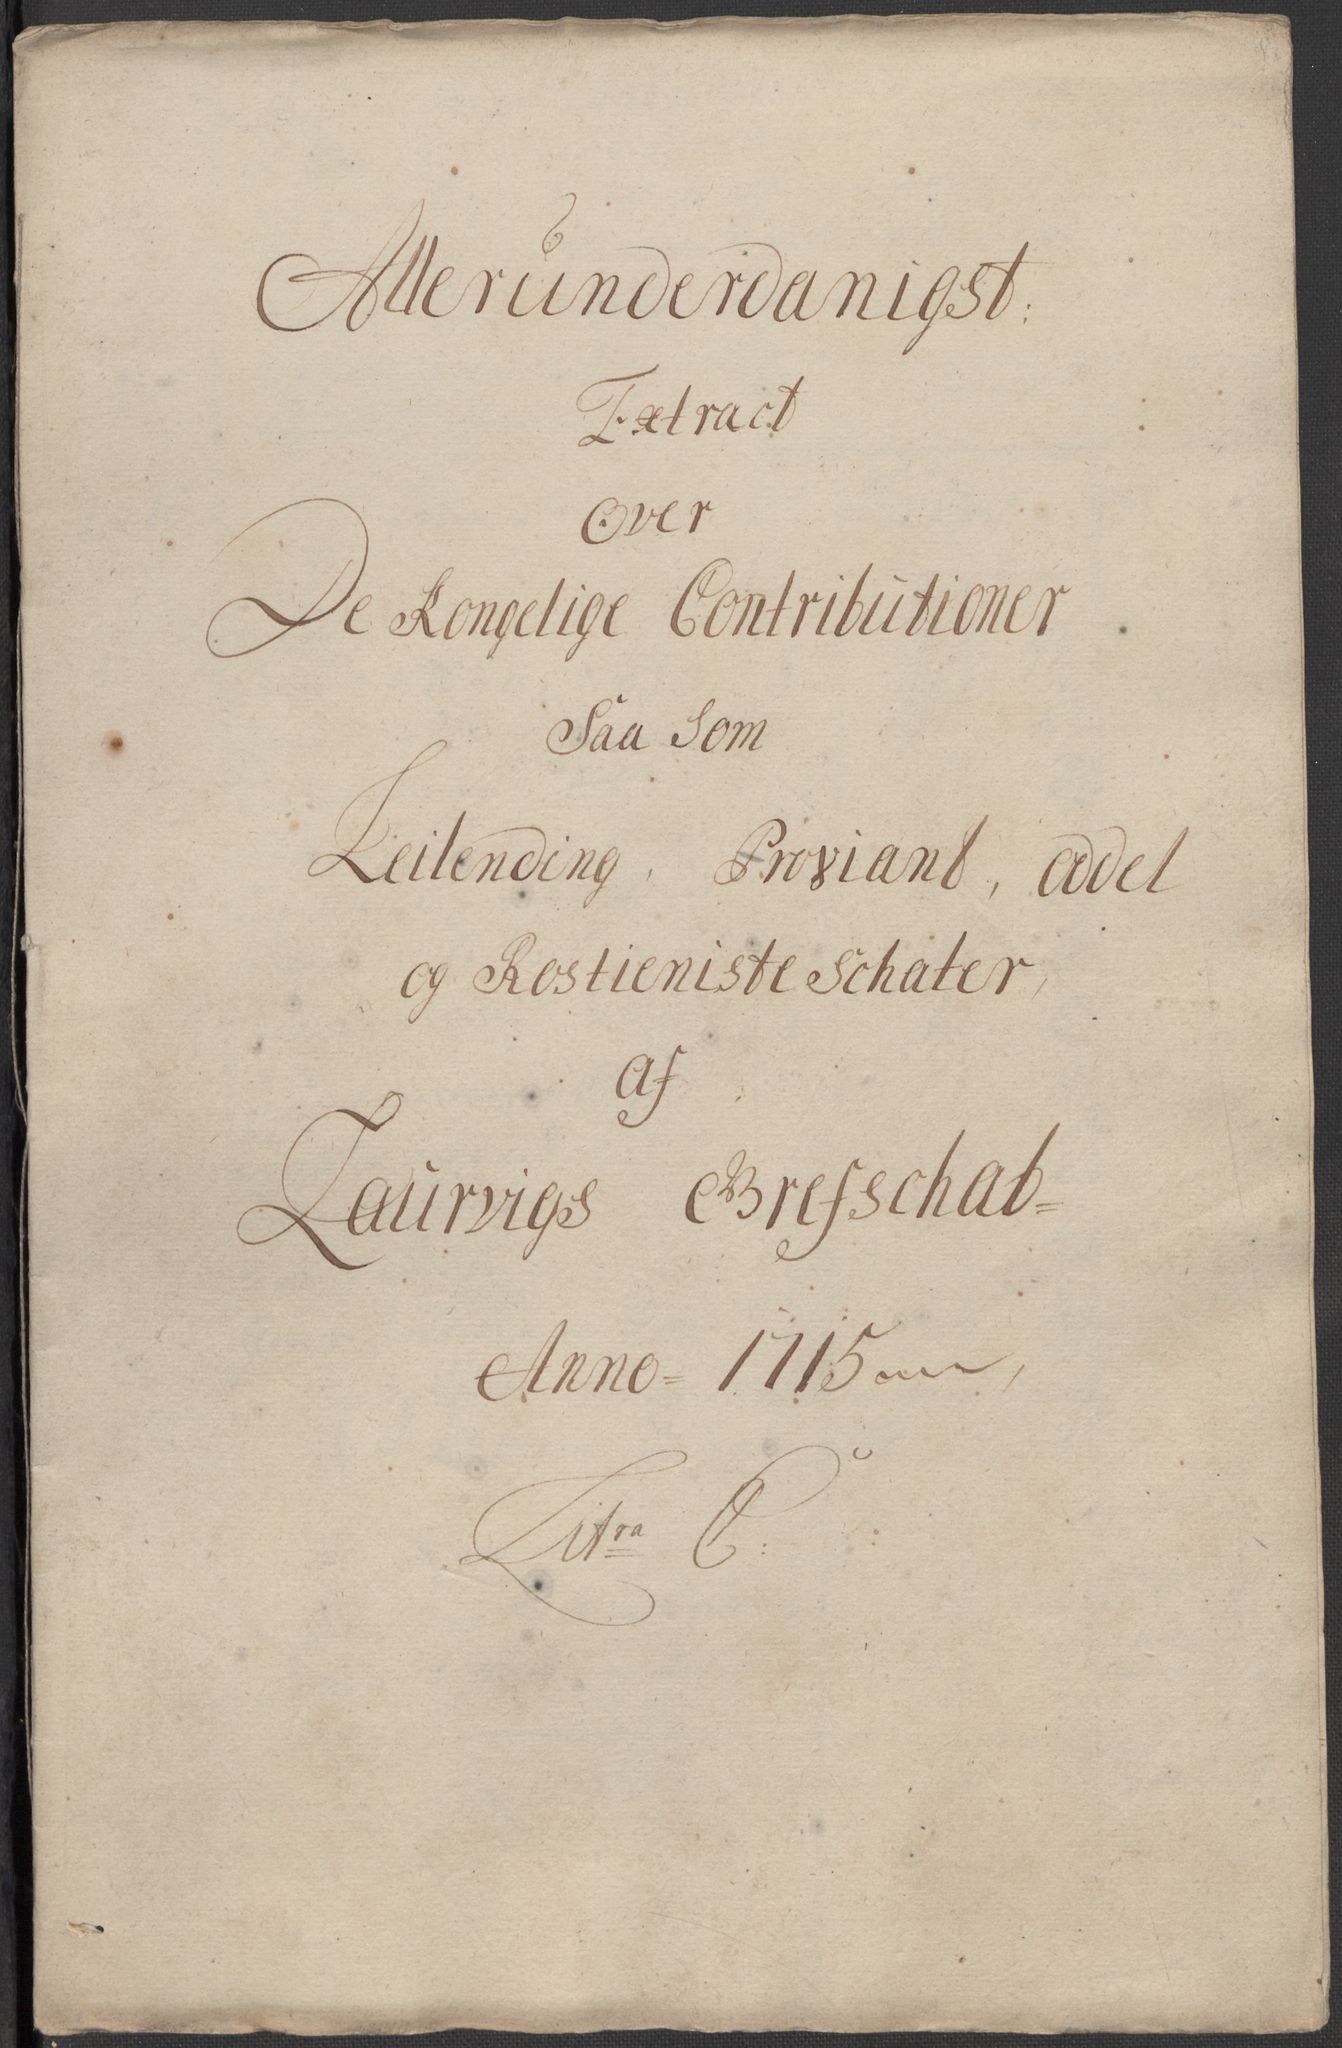 Alleründerdanigst:
Extract
Over
De Kongelige Contribütioner
Saa Som
Leilending, Proviant, Odel
og Rostieniste Schater,
Af
Laürvigs Grefschab=
Anno= 1715
Litra C: